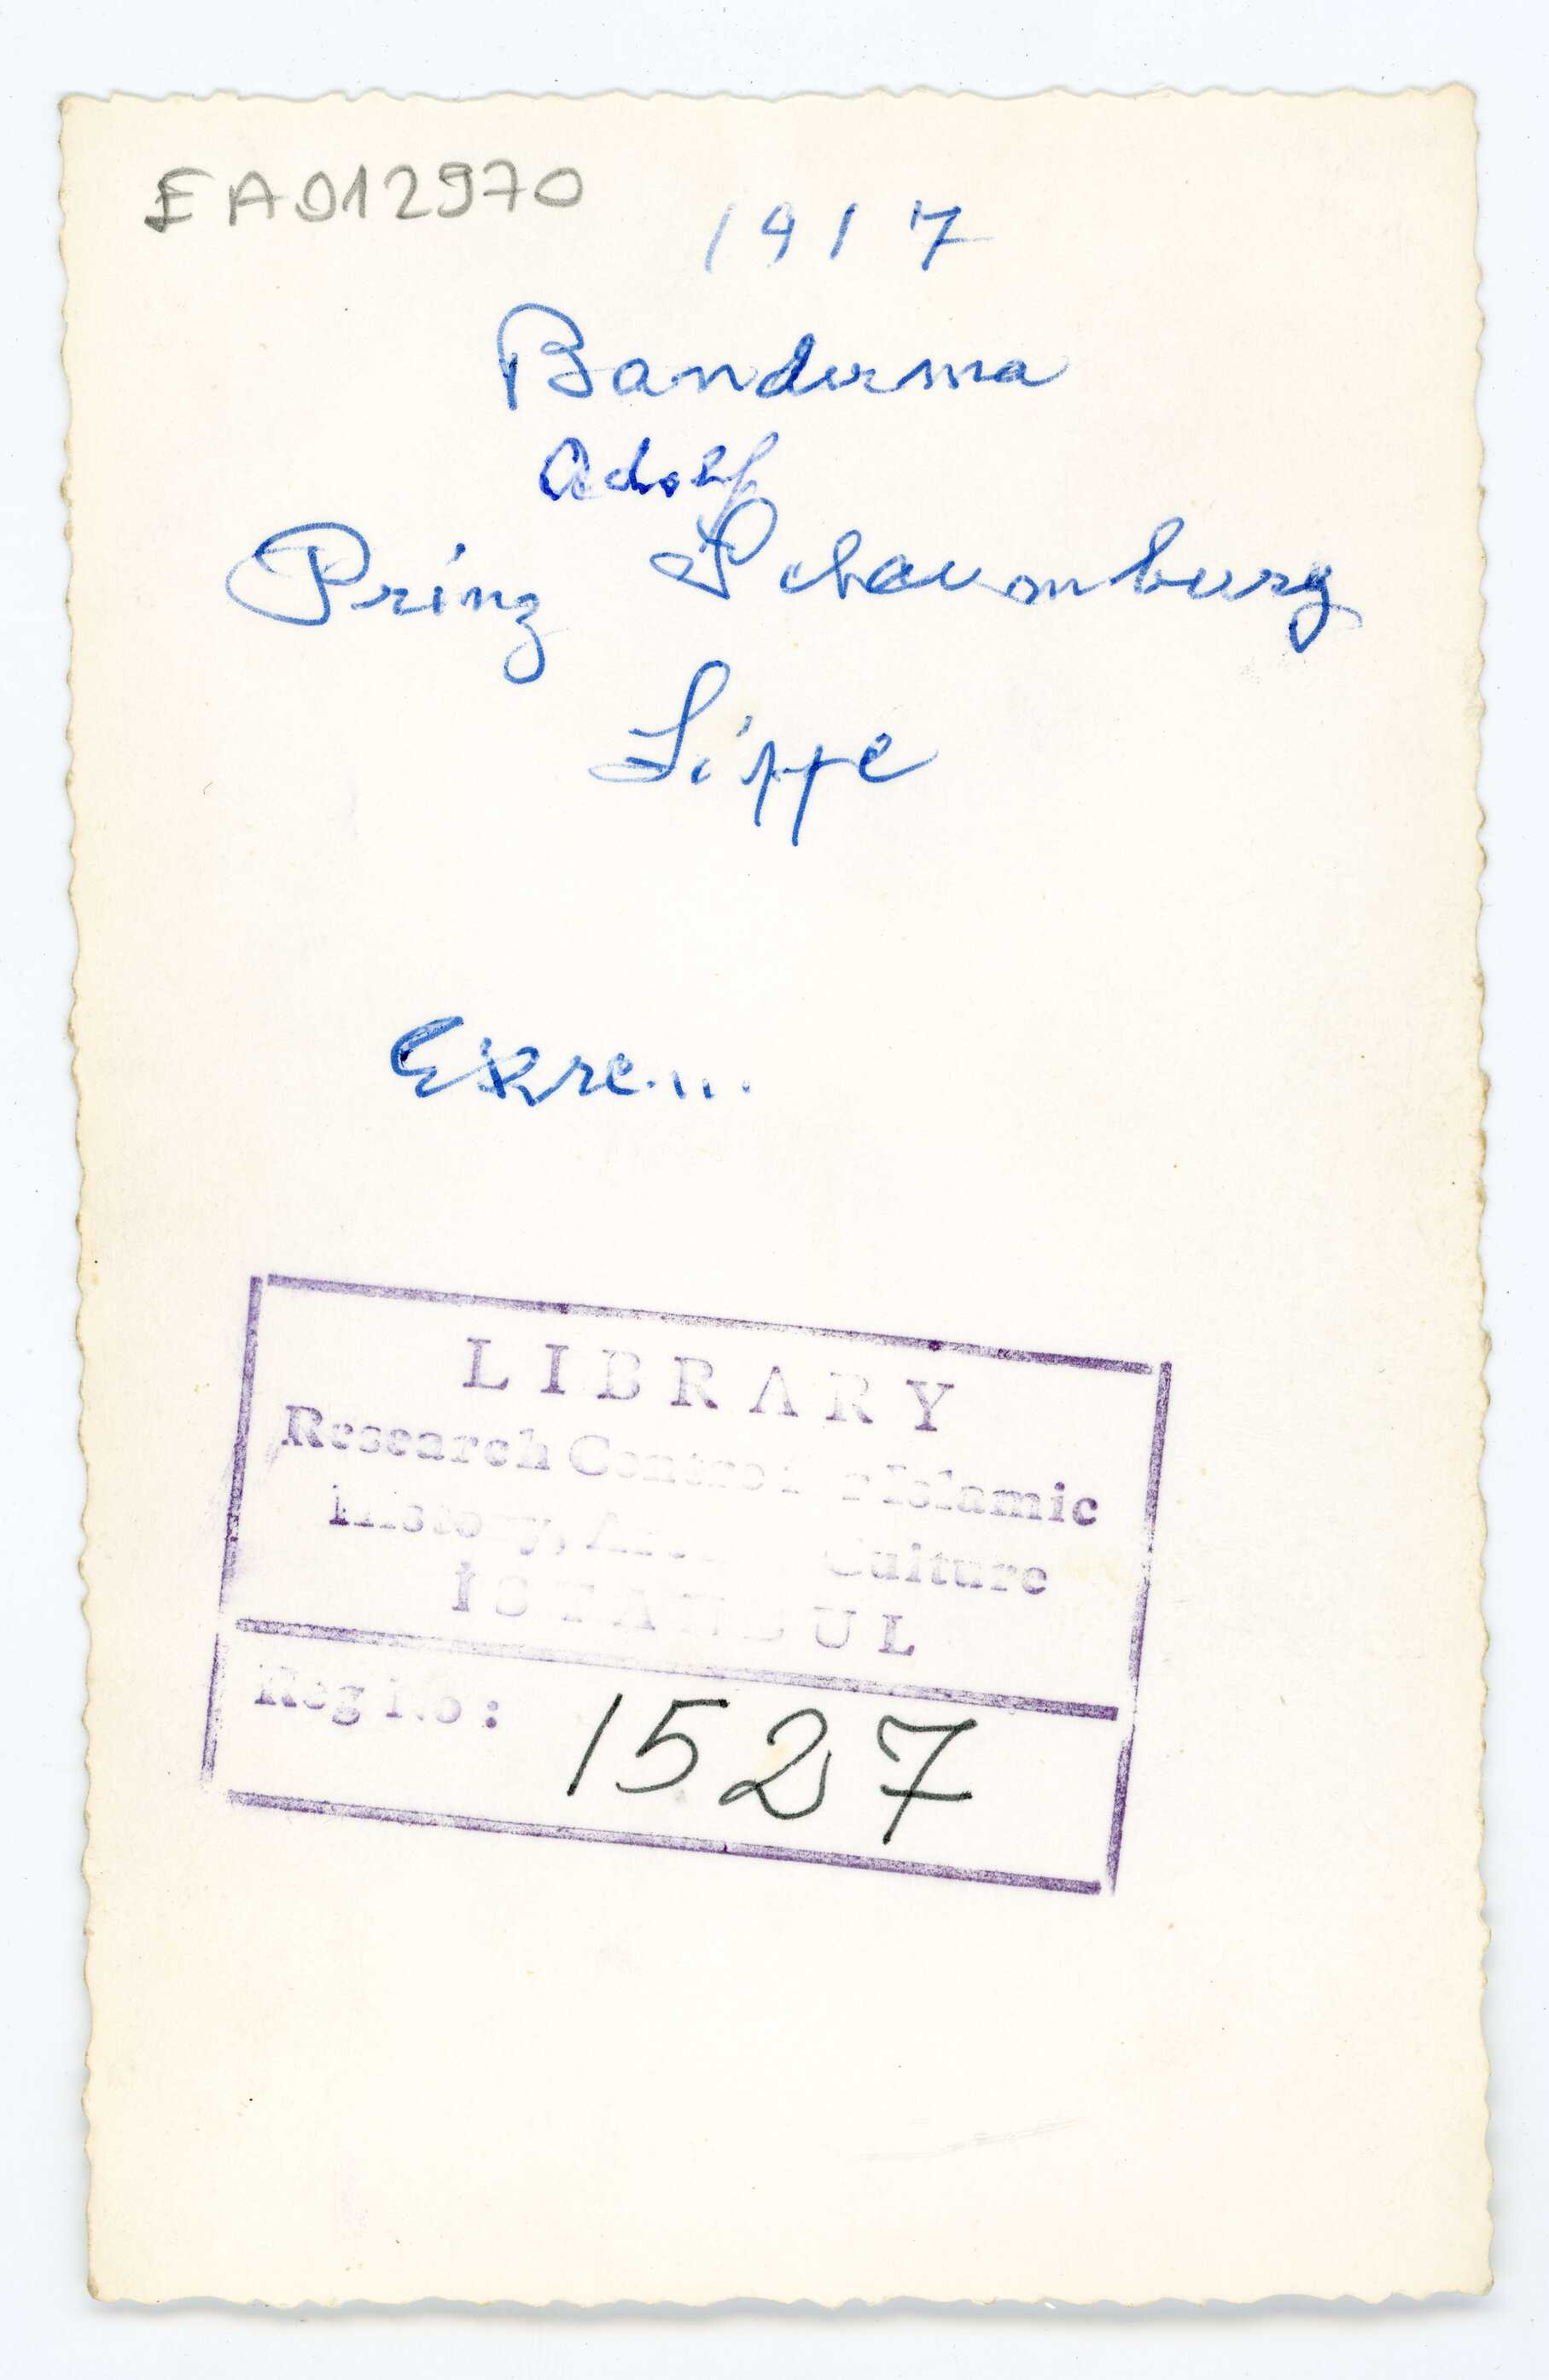 EA012970
1917
Banderma
Adolf
Prinz Schaumburg
Lippe
Ekre....
LIBRARY
Research Centre for Islamic
History, Art and Culture
İSTANBUL
Reg No: 1527